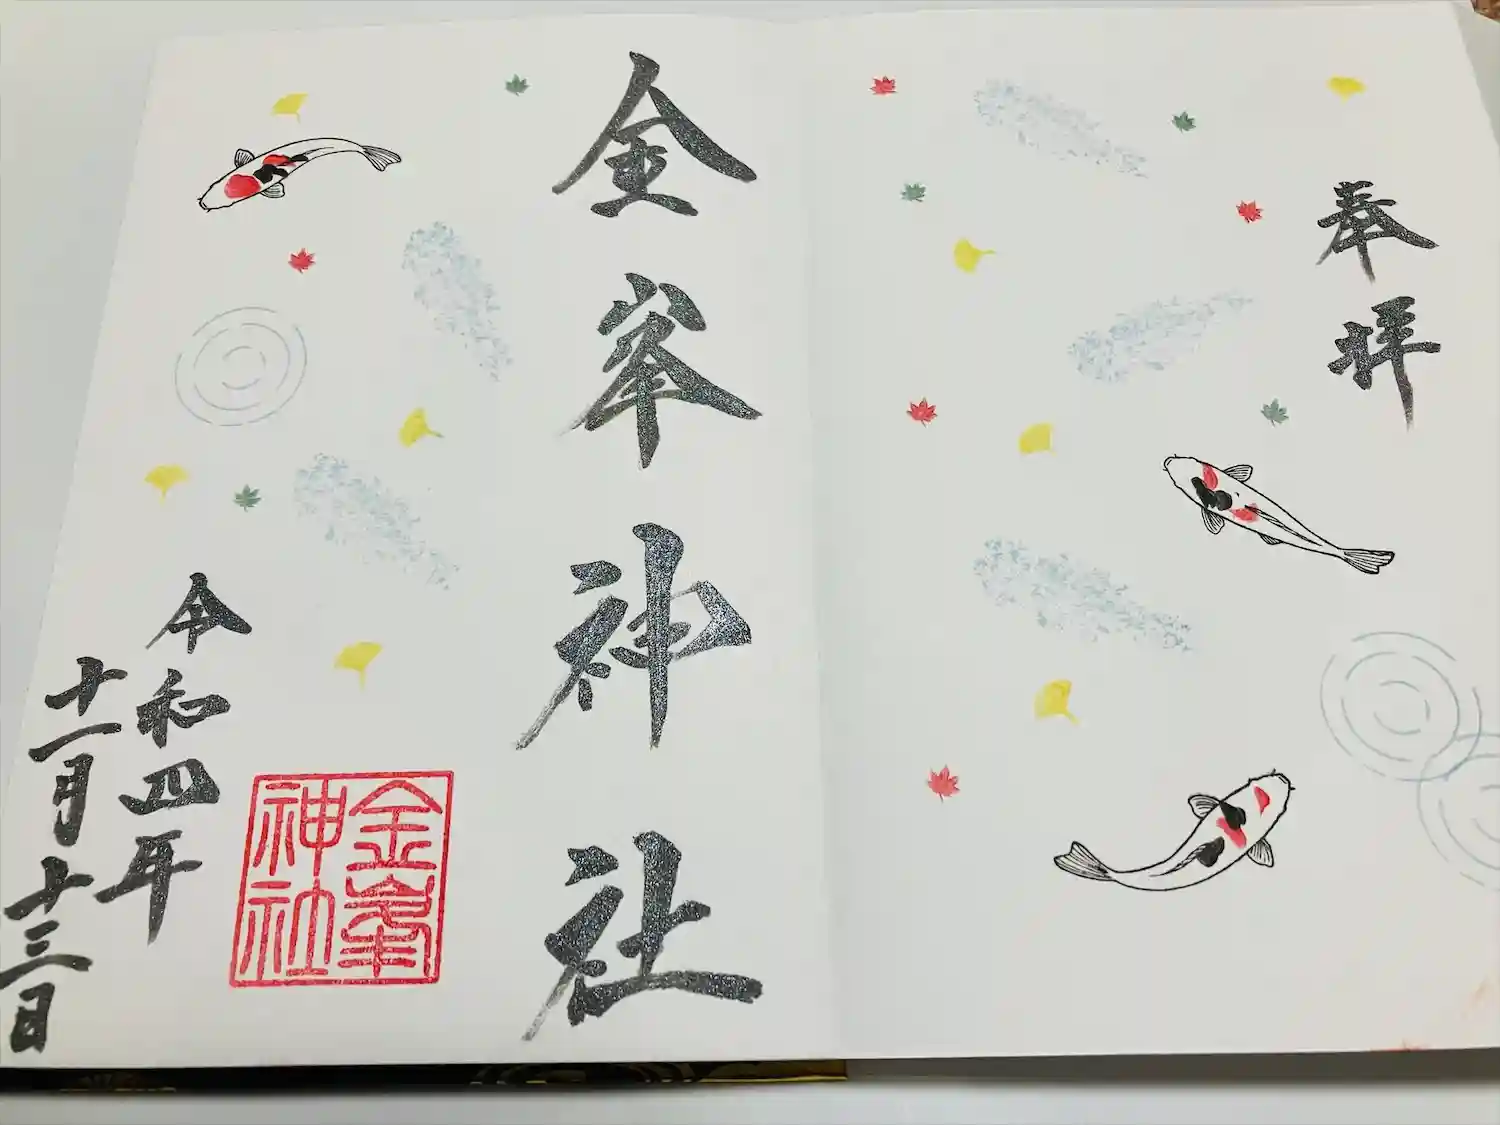 奉拝
金峯神社
金峯神社
令和四年
十一月十三日